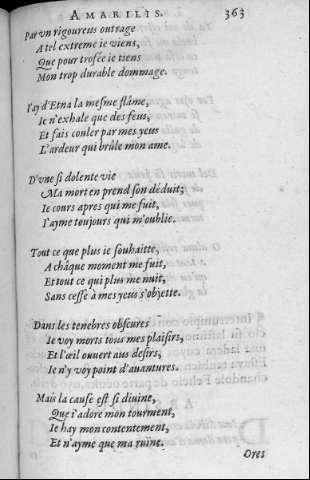 AMARILIS. 363
Par vn rigoureus outrage
A tel extreme ie viens,
Que pour trofée ie tiens
Mon trop durable dommage.
I'ay d'Etna la mesme flâme,
Ie n'exhale que des feus,
Et fais couler par mes yeus
L'ardeur qui brûle mon ame.
D'vne si dolente vie
Ma mort en prend son déduit;
Ie cours apres qui me fuit,
I'ayme toujours qui m'oublie.
Tout ce que plus ie souhaitte,
A châque moment me fuit,
Et tout ce qui plus me nuit,
Sans cesse à mes yeus s'objette.
Dans les tenebres obscures
Ie voy morts tous mes plaisirs,
Et l'œil ouvert aus desirs,
Ie n'y voy point d'auantures.
Mais la cause est si diuine,
Que i'adore mon tourment,
Ie hay mon contentement,
Et n'ayme que ma ruïne.
Ores